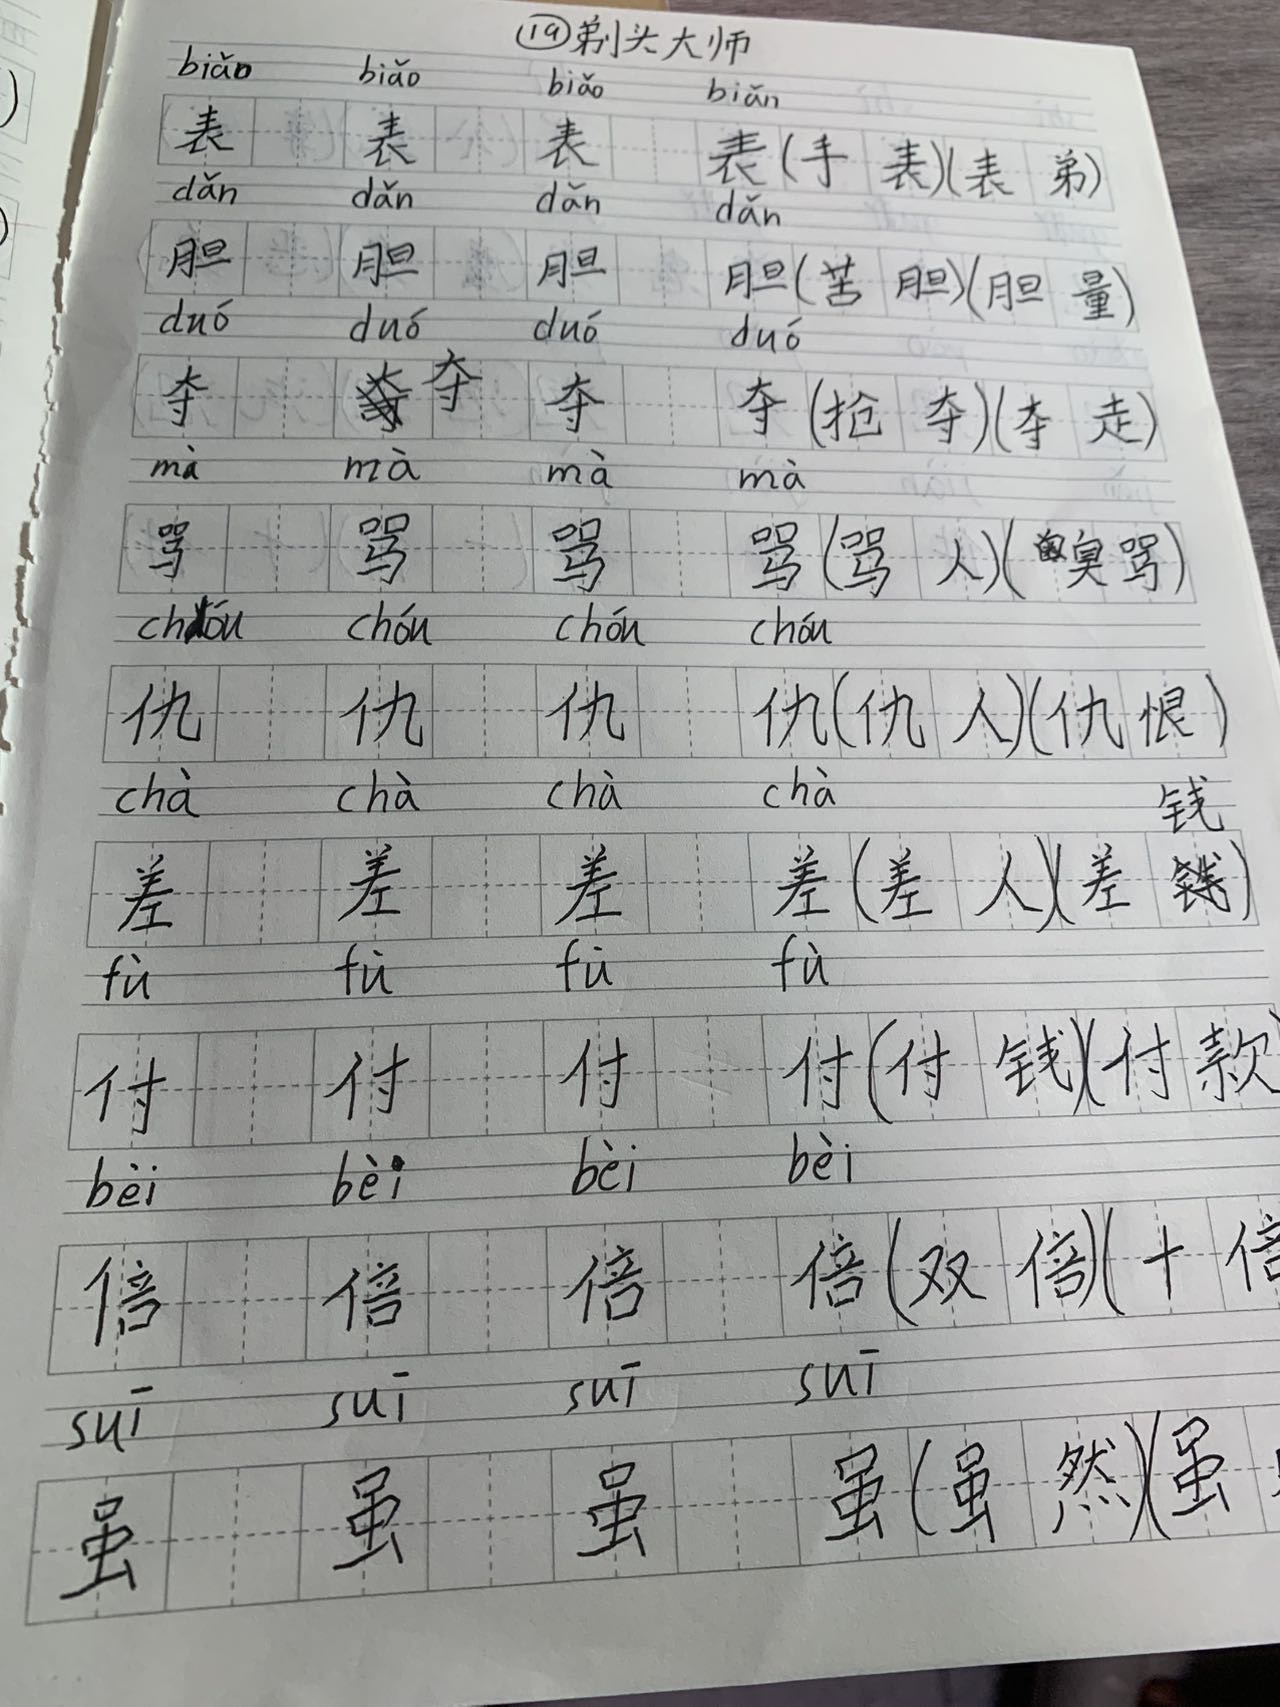 ⑲剃头大师
biǎo biǎo biǎo biǎn
表 表 表 表(手表)(表弟)
dǎn dǎn dǎn dǎn
胆 胆 胆 胆(苦胆)(胆量)
duó duó duó duó
夺 夺 夺 夺(抢夺)(夺走)
mà mà mà mà
骂 骂 骂 骂(骂人)(臭骂)
chóu chóu chóu chóu
仇 仇 仇 仇(仇人)(仇恨)
chà chà chà chà
差 差 差 差(差人)(差钱)
fù fù fù fù
付 付 付 付(付钱)(付款)
bèi bèi bèi bèi
倍 倍 倍 倍(双倍)(十倍
suī suī suī suī
虽 虽 虽 虽(虽然)(虽